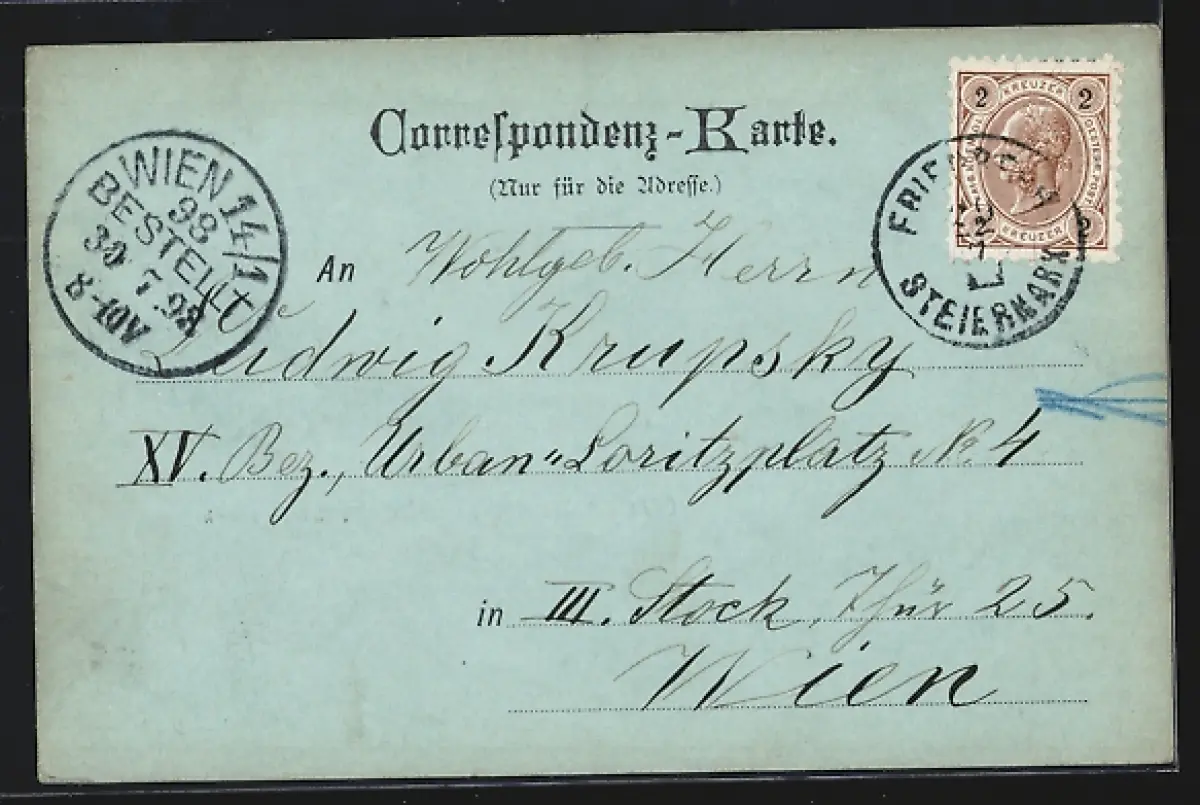 Correspondenz-Karte.
(Nur für die Adresse.)
2 KREUZER 2
KREUZER
STEIERMARK
WIEN 14/1
98
BESTELLT
30 7.98
8-10V
An Wohlgeb. Herrn
Ludwig Krupsky
XV. Bez., Urban-Loritzplatz № 4
in III. Stock, Thür 25.
Wien